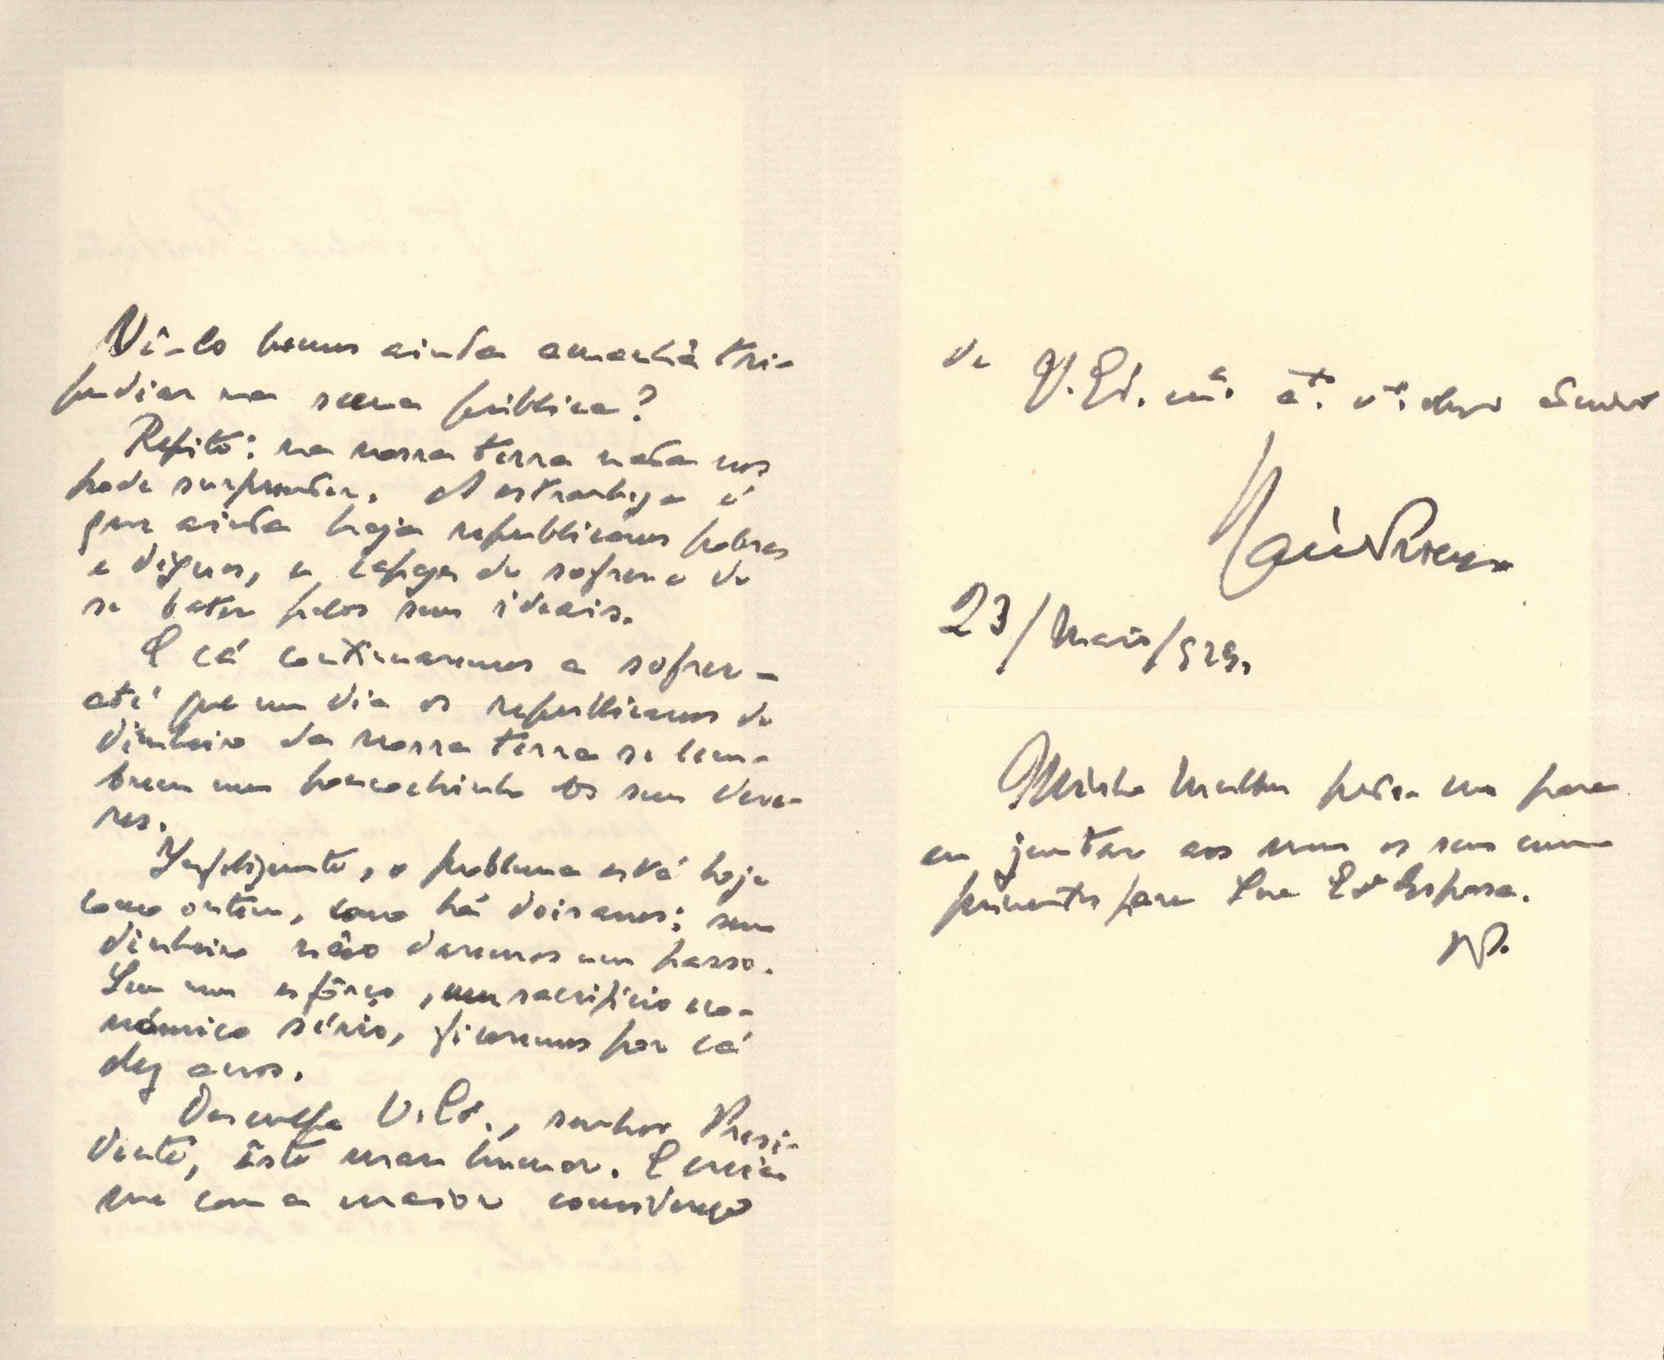 Vê-lo hemos ainda amanhã tri-
pudiar na scena pública?
Repito: na nossa terra nada nos
pode surpreender. A estranheza é
que ainda haja republicanos pobres
e dignos, e capazes de sofrer e de
se bater pelos seus ideais.
E cá continuaremos a sofrer -
até que um dia os republicanos de
dinheiro da nossa terra se lem-
brem um poucochinho dos seus deve-
res.
Infelizmente, o problema está hoje
como ontem, como há dois anos: sem
dinheiro não daremos um passo.
Sem um esfôrço, um sacrifício eco-
nómico sério, ficaremos por cá
dez anos.
Desculpe V. Exª., senhor Presi-
dente, êste mau humor. E creia
me com a maior consideração
de V. Exª. mº. atº. vº. obgº
23/Maio/929.
Minha Mulher pede-me para
eu juntar aos meus os seus cum
primentos para Sua Exª Esposa.